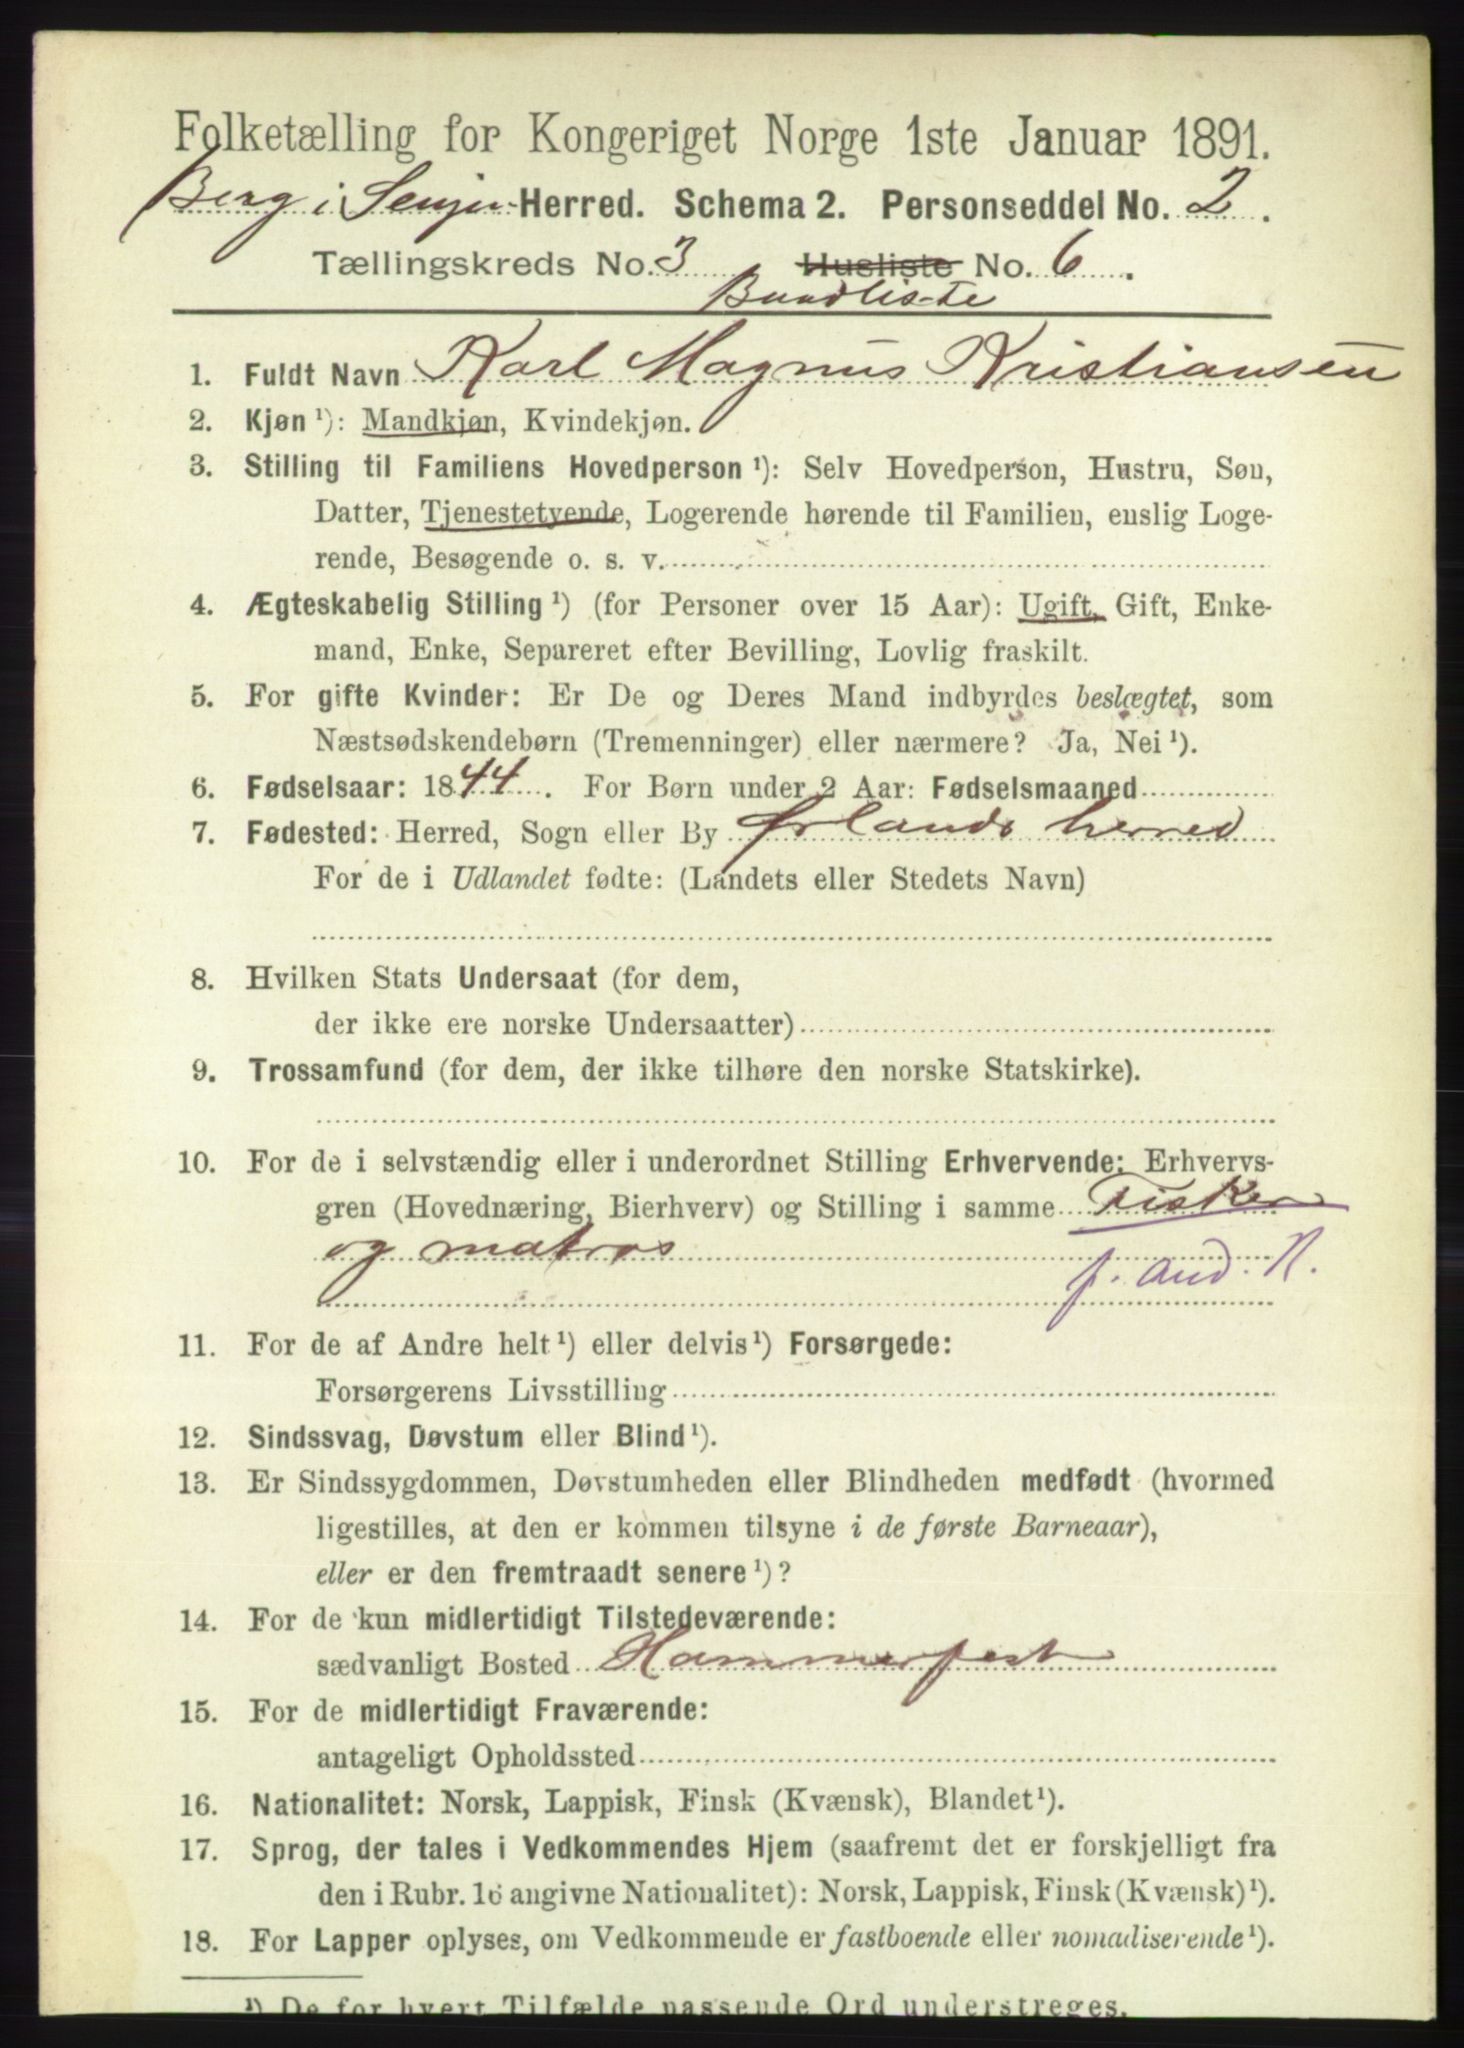 Folketælling for Kongeriget Norge 1ste Januar 1891.
Berg i Senjen Herred. Schema 2. Personseddel No. 2.
Tællingskreds No. 3 Husliste No. 6.
Baadliste
1. Fuldt Navn Karl Magnus Kristiansen
2. Kjøn ¹): Mandkjøn, Kvindekjøn.
3. Stilling til Familiens Hovedperson ¹): Selv Hovedperson, Hustru, Søn,
Datter, Tjenestetyende, Logerende hørende til Familien, enslig Loge-
rende, Besøgende o. s. v.
4. Ægteskabelig Stilling ¹) (for Personer over 15 Aar): Ugift, Gift, Enke-
mand, Enke, Separeret efter Bevilling, Lovlig fraskilt.
5. For gifte Kvinder: Er De og Deres Mand indbyrdes beslægtet, som
Næstsødskendebørn (Tremenninger) eller nærmere? Ja, Nei ¹).
6. Fødselsaar: 1844. For Børn under 2 Aar: Fødselsmaaned
7. Fødested: Herred, Sogn eller By Ørlands herred
For de i Udlandet fødte: (Landets eller Stedets Navn)
8. Hvilken Stats Undersaat (for dem,
der ikke ere norske Undersaatter)
9. Trossamfund (for dem, der ikke tilhøre den norske Statskirke).
10. For de i selvstændig eller i underordnet Stilling Erhvervende: Erhvervs-
gren (Hovednæring, Bierhverv) og Stilling i samme Fisker
og matros
f. and. R.
11. For de af Andre helt ¹) eller delvis ¹) Forsørgede:
Forsørgerens Livsstilling
12. Sindssvag, Døvstum eller Blind ¹).
13. Er Sindssygdommen, Døvstumheden eller Blindheden medfødt (hvormed
ligestilles, at den er kommen tilsyne i de første Barneaar),
eller er den fremtraadt senere ¹)?
14. For de kun midlertidigt Tilstedeværende:
sædvanligt Bosted Hammerfest
15. For de midlertidigt Fraværende:
antageligt Opholdssted
16. Nationalitet: Norsk, Lappisk, Finsk (Kvænsk), Blandet ¹).
17. Sprog, der tales i Vedkommendes Hjem (saafremt det er forskjelligt fra
den i Rubr. 16 angivne Nationalitet): Norsk, Lappisk, Finsk (Kvænsk) ¹).
18. For Lapper oplyses, om Vedkommende er fastboende eller nomadiserende ¹).
¹) De for hvert Tilfælde passende Ord understreges.